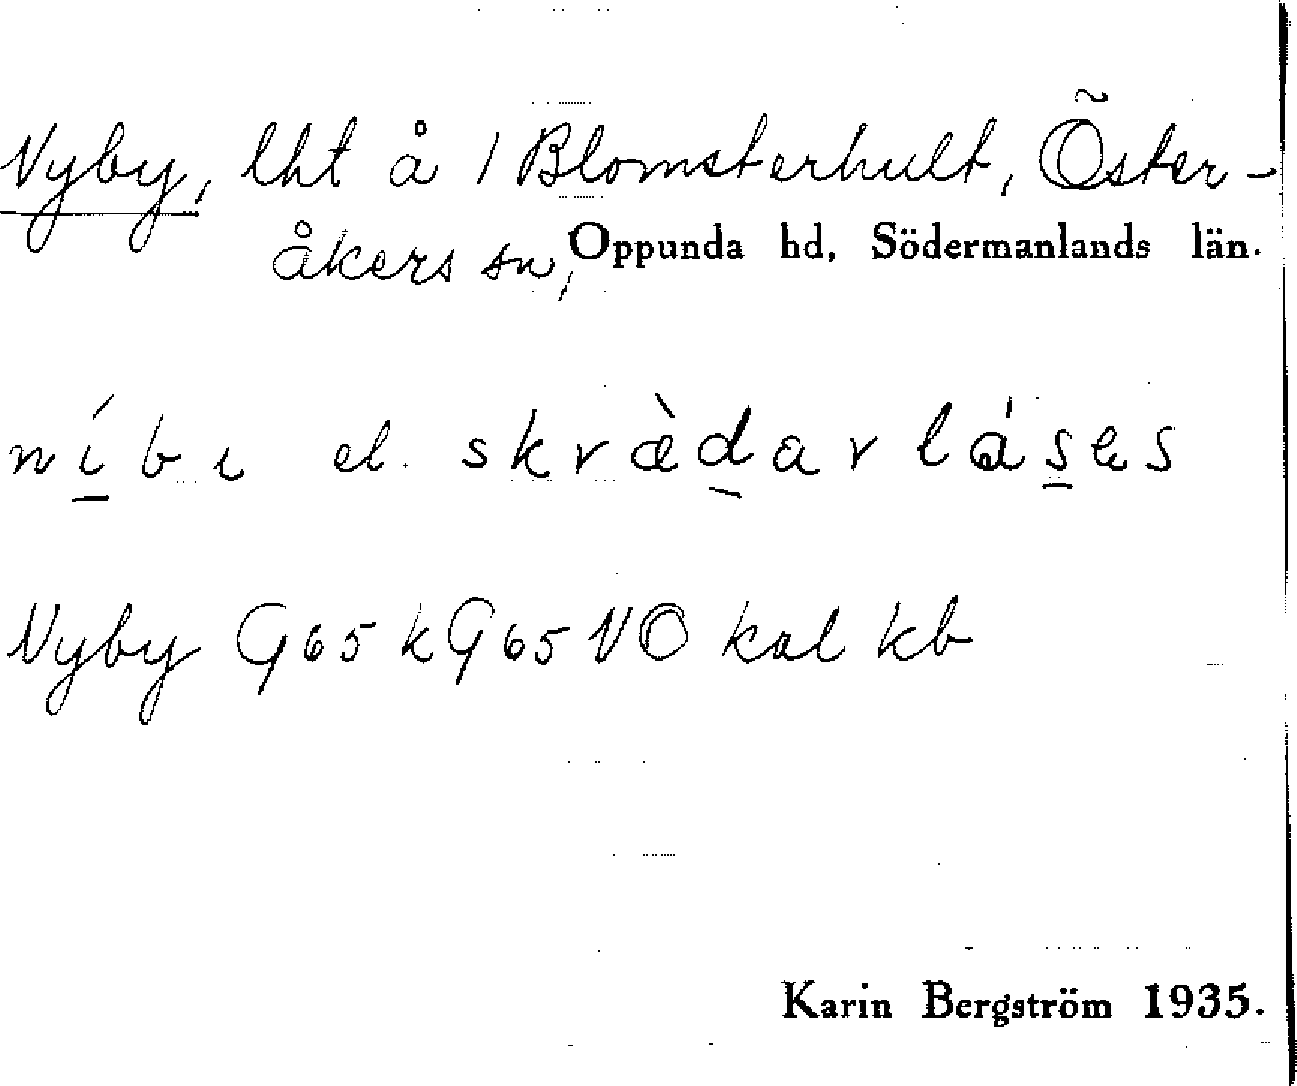 Nyby, lht å 1 Blomsterhult, Öster-
åkers sn, Oppunda hd, Södermanlands län.
níbı el. skræ̀darláses
Nyby G65 kG65 NO kal kb
Karin Bergström 1935.